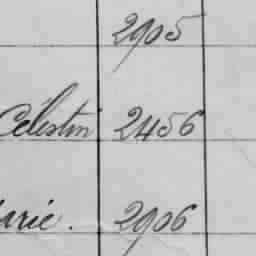 2905
Célestin 2456
arie. 2906